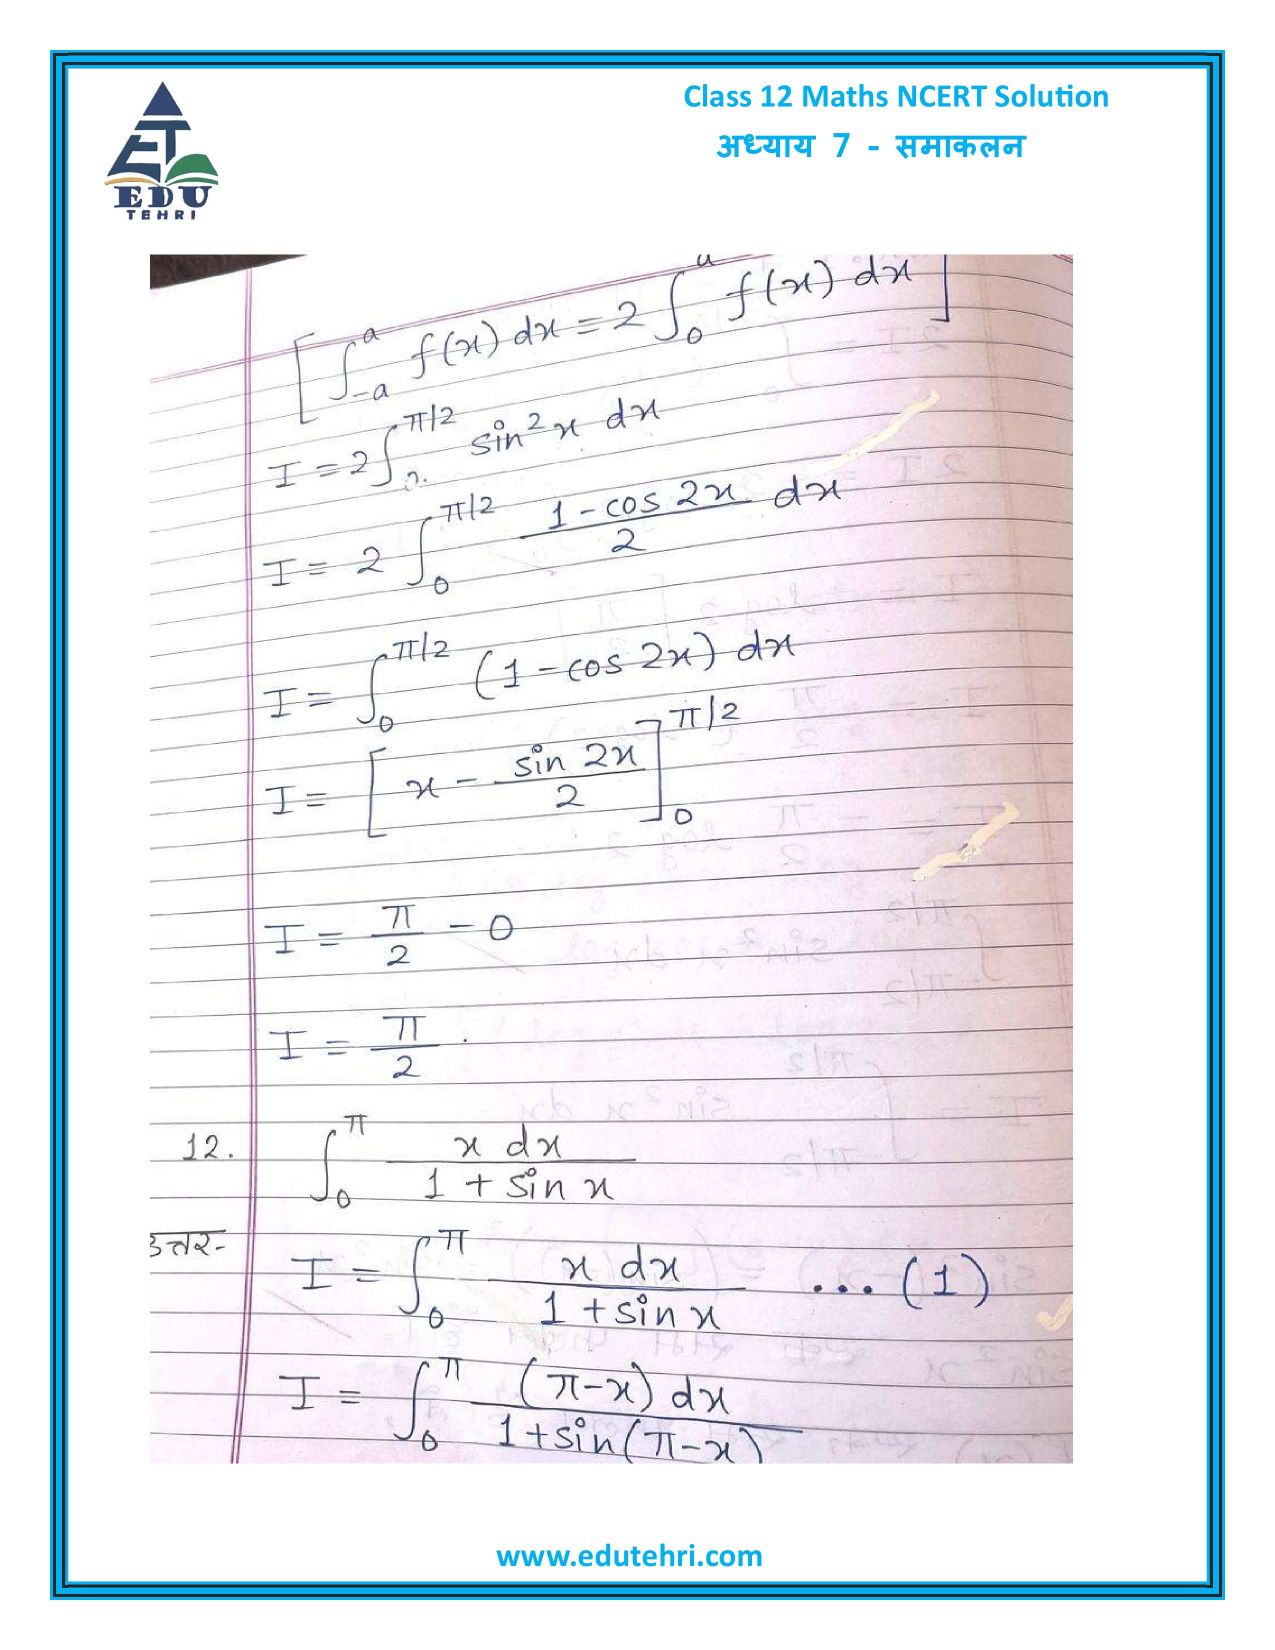 Class 12 Maths NCERT Solution
अध्याय 7 - समाकलन
EDU
TEHRI
[∫_{-a}^{a} f(x) dx = 2∫_0^a f(x) dx]
I = 2∫_0^{π/2} sin²x dx
I = 2 ∫_0^{π/2} (1 - cos 2x)/2 dx
I = ∫_0^{π/2} (1 - cos 2x) dx
I = [x - (sin 2x)/2]_0^{π/2}
I = π/2 - 0
I = π/2 .
12. ∫_0^π (x dx)/(1 + sin x)
उत्तर- I = ∫_0^π (x dx)/(1 + sin x) ... (1)
I = ∫_0^π ((π-x) dx)/(1+sin(π-x))
www.edutehri.com